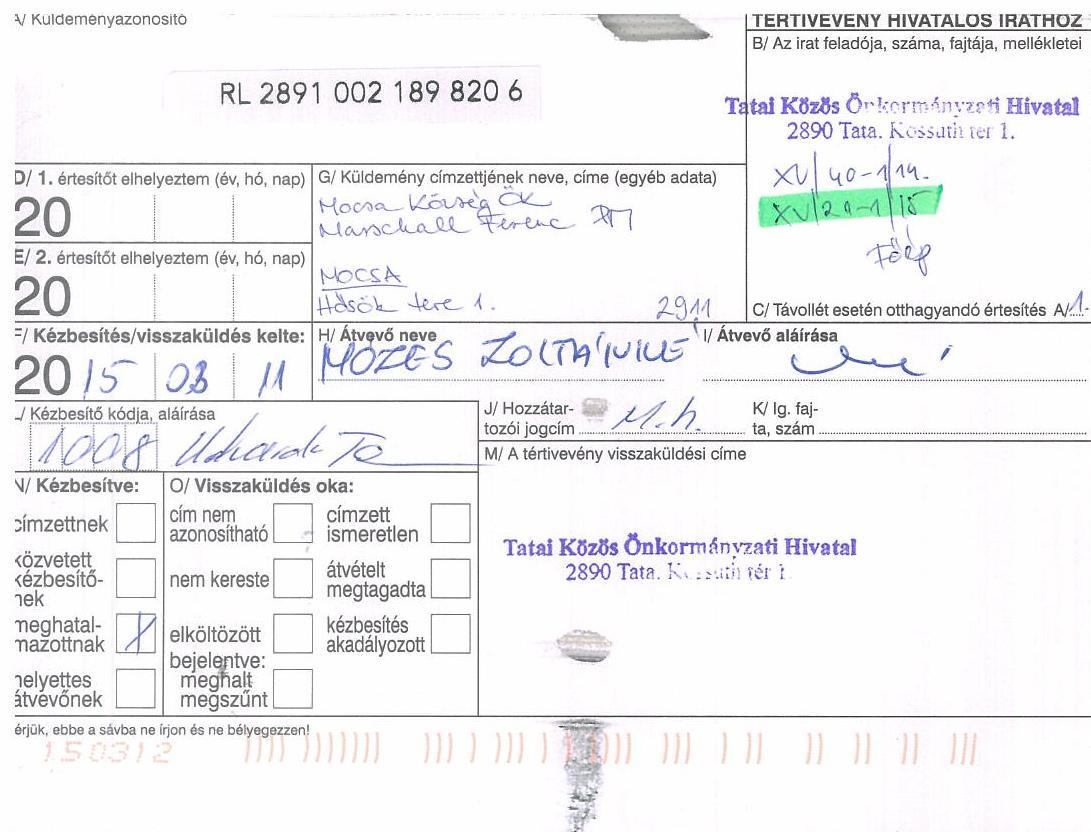 A/ Küldeményazonosító
RL 2891 002 189 820 6
TÉRTIVEVÉNY HIVATALOS IRATHOZ
B/ Az irat feladója, száma, fajtája, mellékletei
Tatai Közös Önkormányzati Hivatal
2890 Tata. Kossuth tér 1.
XV/40-1/14.
XV/21-1/15
Főép
C/ Távollét esetén otthagyandó értesítés A/1.
D/ 1. értesítőt elhelyeztem (év, hó, nap)
20
E/ 2. értesítőt elhelyeztem (év, hó, nap)
20
G/ Küldemény címzettjének neve, címe (egyéb adata)
Mocsa Község ÖK
Marschall Ferenc PM
MOCSA
Hősök tere 1. 2911
F/ Kézbesítés/visszaküldés kelte:
20 15 03 11
H/ Átvevő neve
MÓZES ZOLTÁNNÉ
I/ Átvevő aláírása
L/ Kézbesítő kódja, aláírása
1008
J/ Hozzátar-
tozói jogcím M.h.
K/ Ig. faj-
ta, szám
M/ A tértivevény visszaküldési címe
Tatai Közös Önkormányzati Hivatal
2890 Tata. Kossuth tér 1.
N/ Kézbesítve:
címzettnek
közvetett
kézbesítő-
nek
meghatal-
mazottnak X
helyettes
átvevőnek
O/ Visszaküldés oka:
cím nem
azonosítható
nem kereste
elköltözött
bejelentve:
meghalt
megszűnt
címzett
ismeretlen
átvételt
megtagadta
kézbesítés
akadályozott
kérjük, ebbe a sávba ne írjon és ne bélyegezzen!
150312